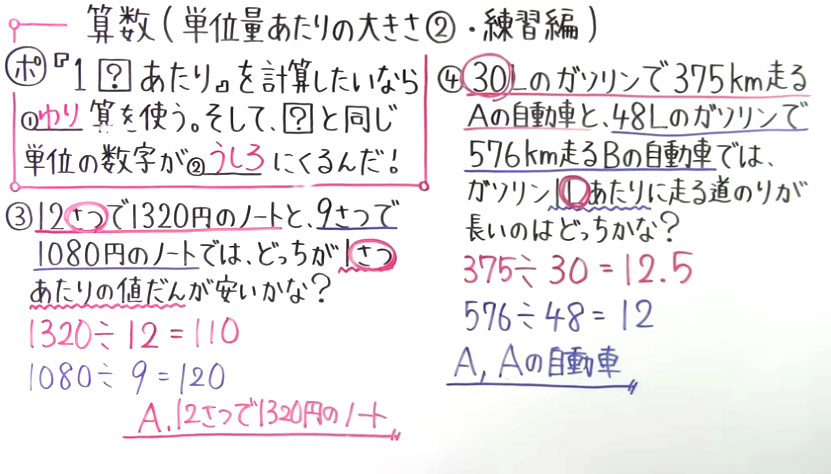 算数(単位量あたりの大きさ②・練習編)
ポ『1 ? あたり』を計算したいなら
①わり算を使う。そして、?と同じ
単位の数字が②うしろにくるんだ!
③12さつで1320円のノートと、9さつで
1080円のノートでは、どっちが1さつ
あたりの値だんが安いかな?
1320÷12=110
1080÷9=120
A.12さつで1320円のノート
④30Lのガソリンで375km走る
Aの自動車と、48Lのガソリンで
576km走るBの自動車では、
ガソリン1Lあたりに走る道のりが
長いのはどっちかな?
375÷30=12.5
576÷48=12
A, Aの自動車